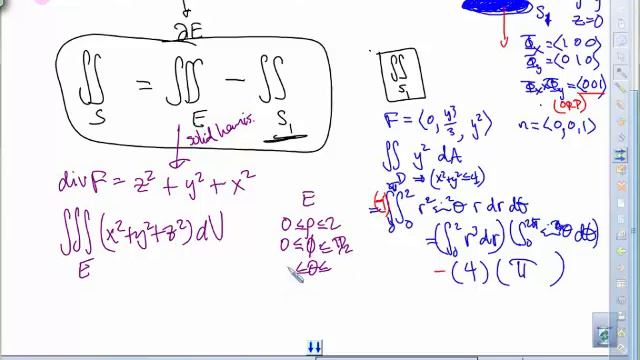 ∂E
∬_S = ∭_E − ∬_{S₁}
solid hemis.
div F = z² + y² + x²
∭_E (x²+y²+z²) dV
E
0 ≤ ρ ≤ 2
0 ≤ φ ≤ π/2
≤ θ ≤
∬_{S₁}
S₁
z=0
Φx = ⟨1 0 0⟩
Φy = ⟨0 1 0⟩
Φx×Φy = ⟨0 0 1⟩
F = ⟨0, y³/3, y²⟩
n = ⟨0,0,1⟩
∬ y² dA
D → (x²+y² ≤ 4)
= (−)∫∫₀² r² sin²θ r dr dθ
= (∫₀² r³ dr) (∫₀^{2π} sin²θ dθ)
− (4) (π)